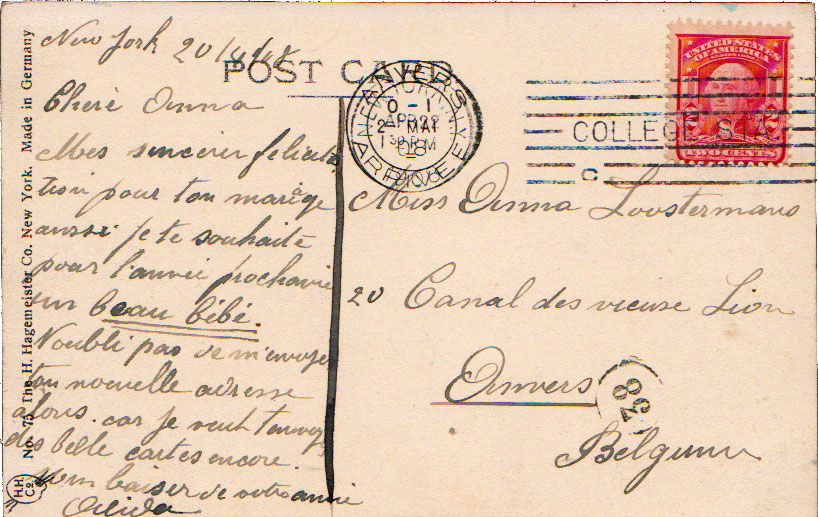 New York 20/4/08
POST CARD
Cheré Anna
Mes sincerer felicita
tion pour ton marège
aussi je te souhaite
pour l'année prochaine
un beau bébé.
Noubli pas de m'envoyer
ton nouvelle adresse
alors. car je veut t'envoyer
des belle cartes encore.
un baiser de votre amie
UNITED STATES
OF AMERICA
TWO CENTS
COLLEGE STA.
C
ANVERS
0 - 1
APR 22
2 - MAI
1 30 PM
08
ARRIVEE
Miss Anna Loostermans
20 Canal des vieuse Lion
Anvers
38
Belgium
No. 73 The H. Hagemeister Co. New York. Made in Germany
H.H.
Co.